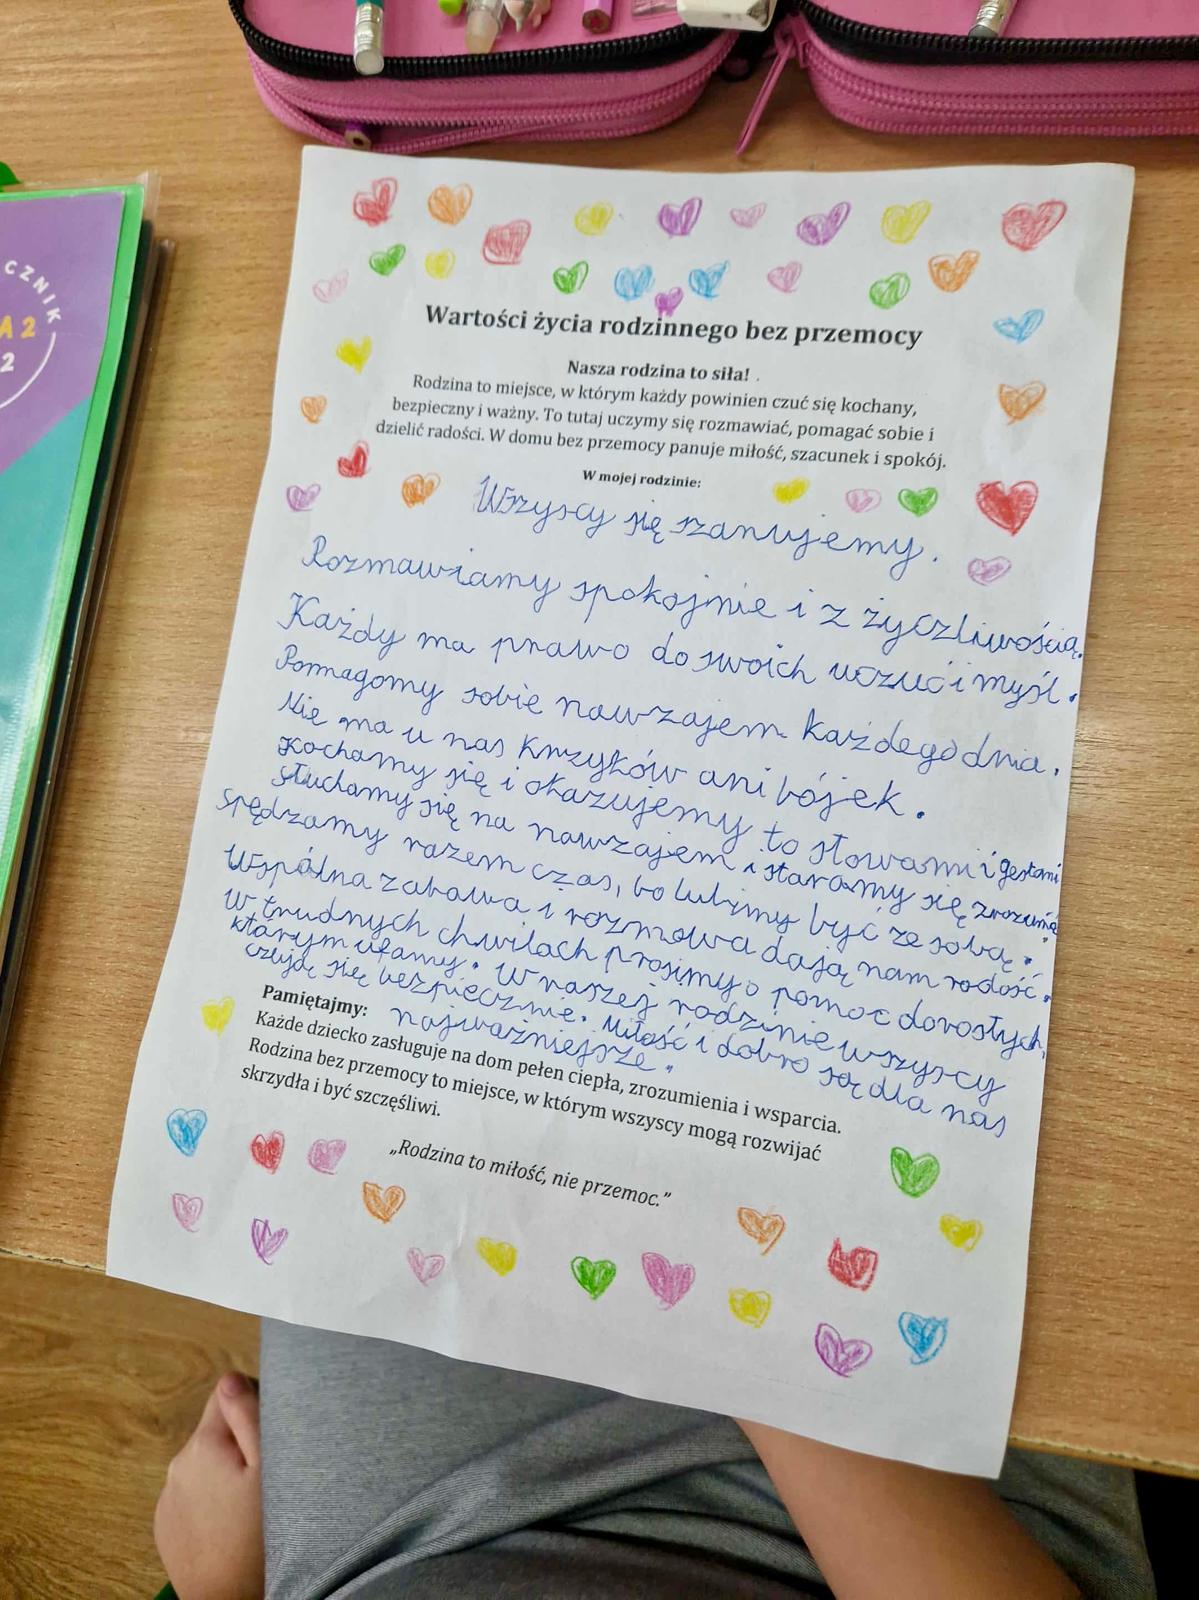 CZNIK
A 2
2
Wartości życia rodzinnego bez przemocy
Nasza rodzina to siła!
Rodzina to miejsce, w którym każdy powinien czuć się kochany,
bezpieczny i ważny. To tutaj uczymy się rozmawiać, pomagać sobie i
dzielić radości. W domu bez przemocy panuje miłość, szacunek i spokój.
W mojej rodzinie:
Wszyscy się szanujemy.
Rozmawiamy spokojnie i z życzliwością.
Każdy ma prawo do swoich uczuć i myśl.
Pomagamy sobie nawzajem każdego dnia.
Nie ma u nas krzyków ani bójek.
Kochamy się i okazujemy to słowami i gestami
słuchamy się na nawzajem i staramy się zrozumieć
spędzamy razem czas, bo lubimy być ze sobą.
Wspólna zabawa i rozmowa dają nam radość.
W trudnych chwilach prosimy o pomoc dorosłych,
którym ufamy. W naszej rodzinie wszyscy
czują się bezpiecznie. Miłość i dobro są dla nas
najważniejsze.
Pamiętajmy:
Każde dziecko zasługuje na dom pełen ciepła, zrozumienia i wsparcia.
Rodzina bez przemocy to miejsce, w którym wszyscy mogą rozwijać
skrzydła i być szczęśliwi.
„Rodzina to miłość, nie przemoc.”